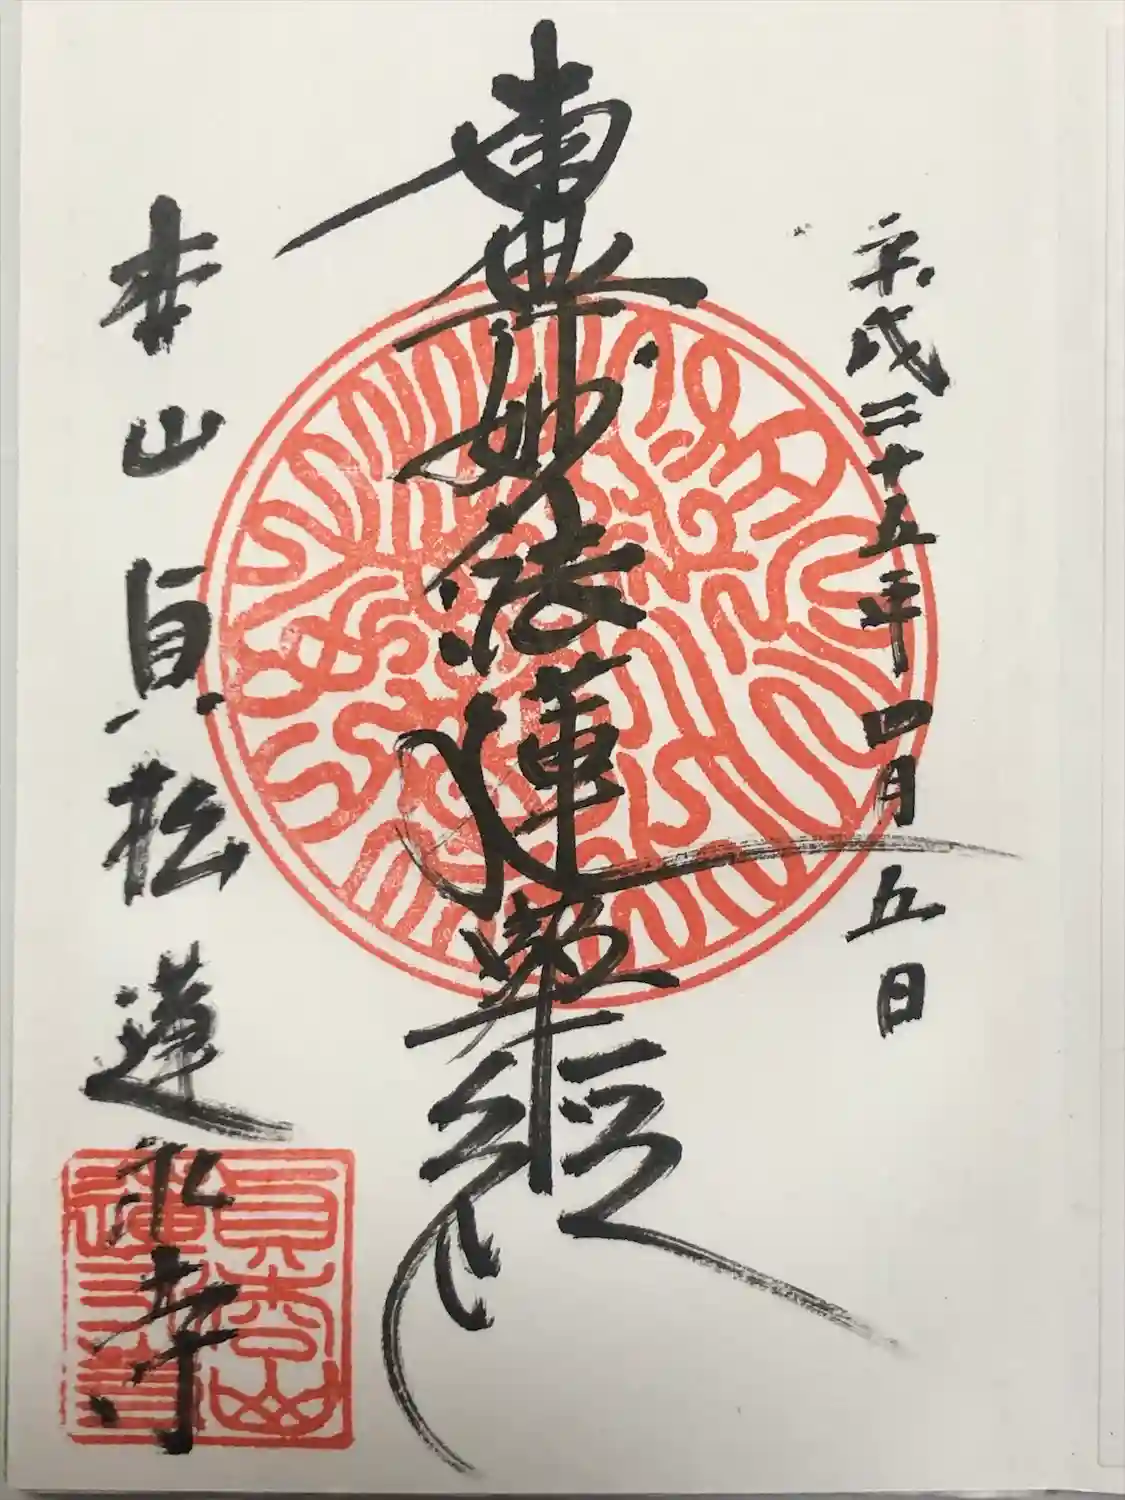 平成二十五年四月五日
南無妙法蓮華經
本山 貞松 蓮永寺
貞松山
蓮永寺